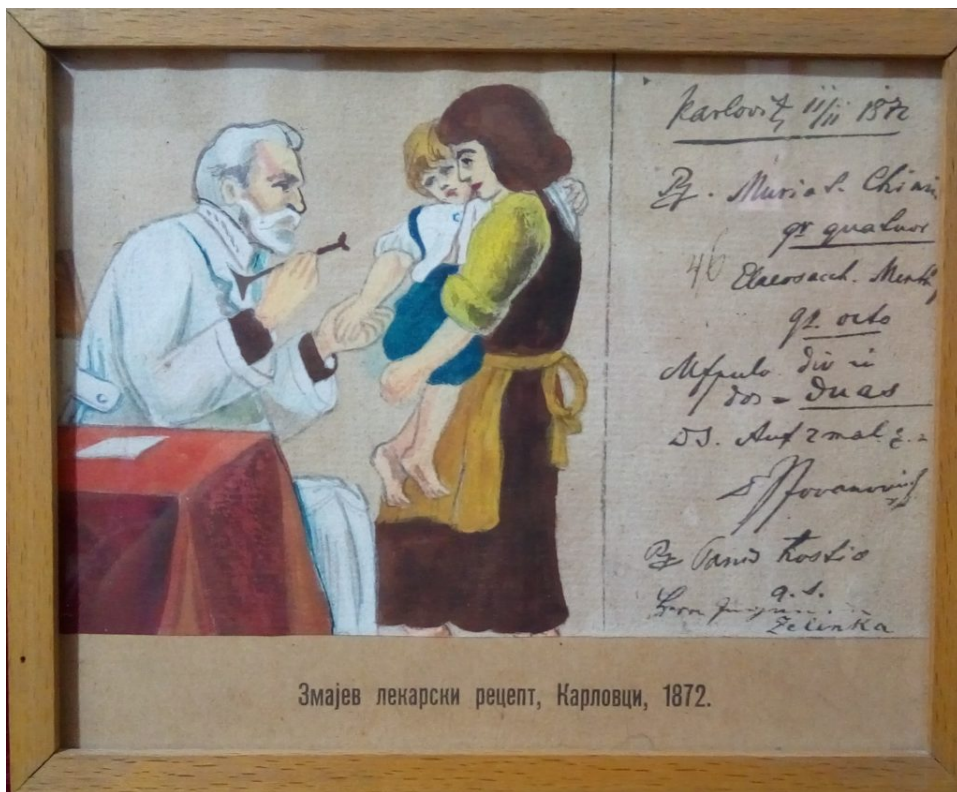 Karlovitz 11/11 1872
Rp. Muriat. Chinin
gr quatuor
46 Elaeosacch. Menth
gr. octo
div in
dos = duas
DS. Auf 2 mal
Jovanovich
Rp
q. s.
Zelinka
Змајев лекарски рецепт, Карловци, 1872.